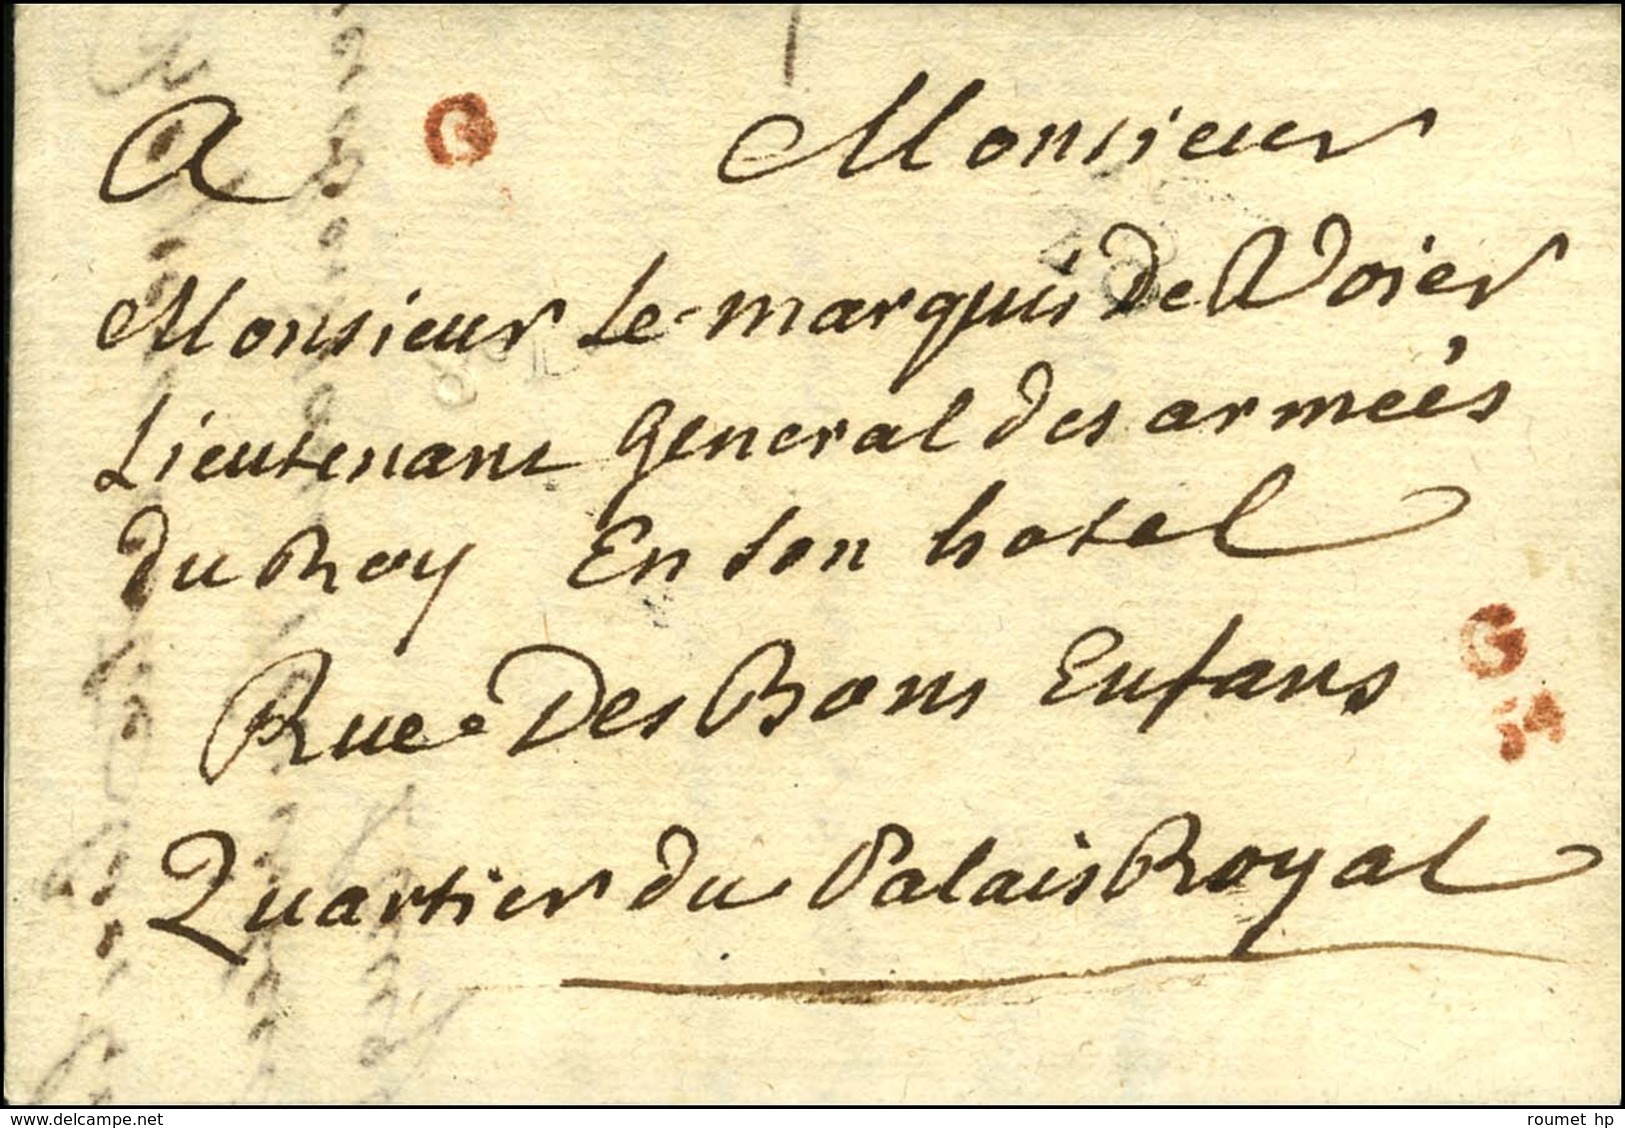 A G Monsieur
Monsieur Le marquis de Voier
Lieutenant General des armeés
du Roy En son hotel
Rue Des Bons Enfans G
Quartier du Palais Royal
www.delcampe.net
roumet hp